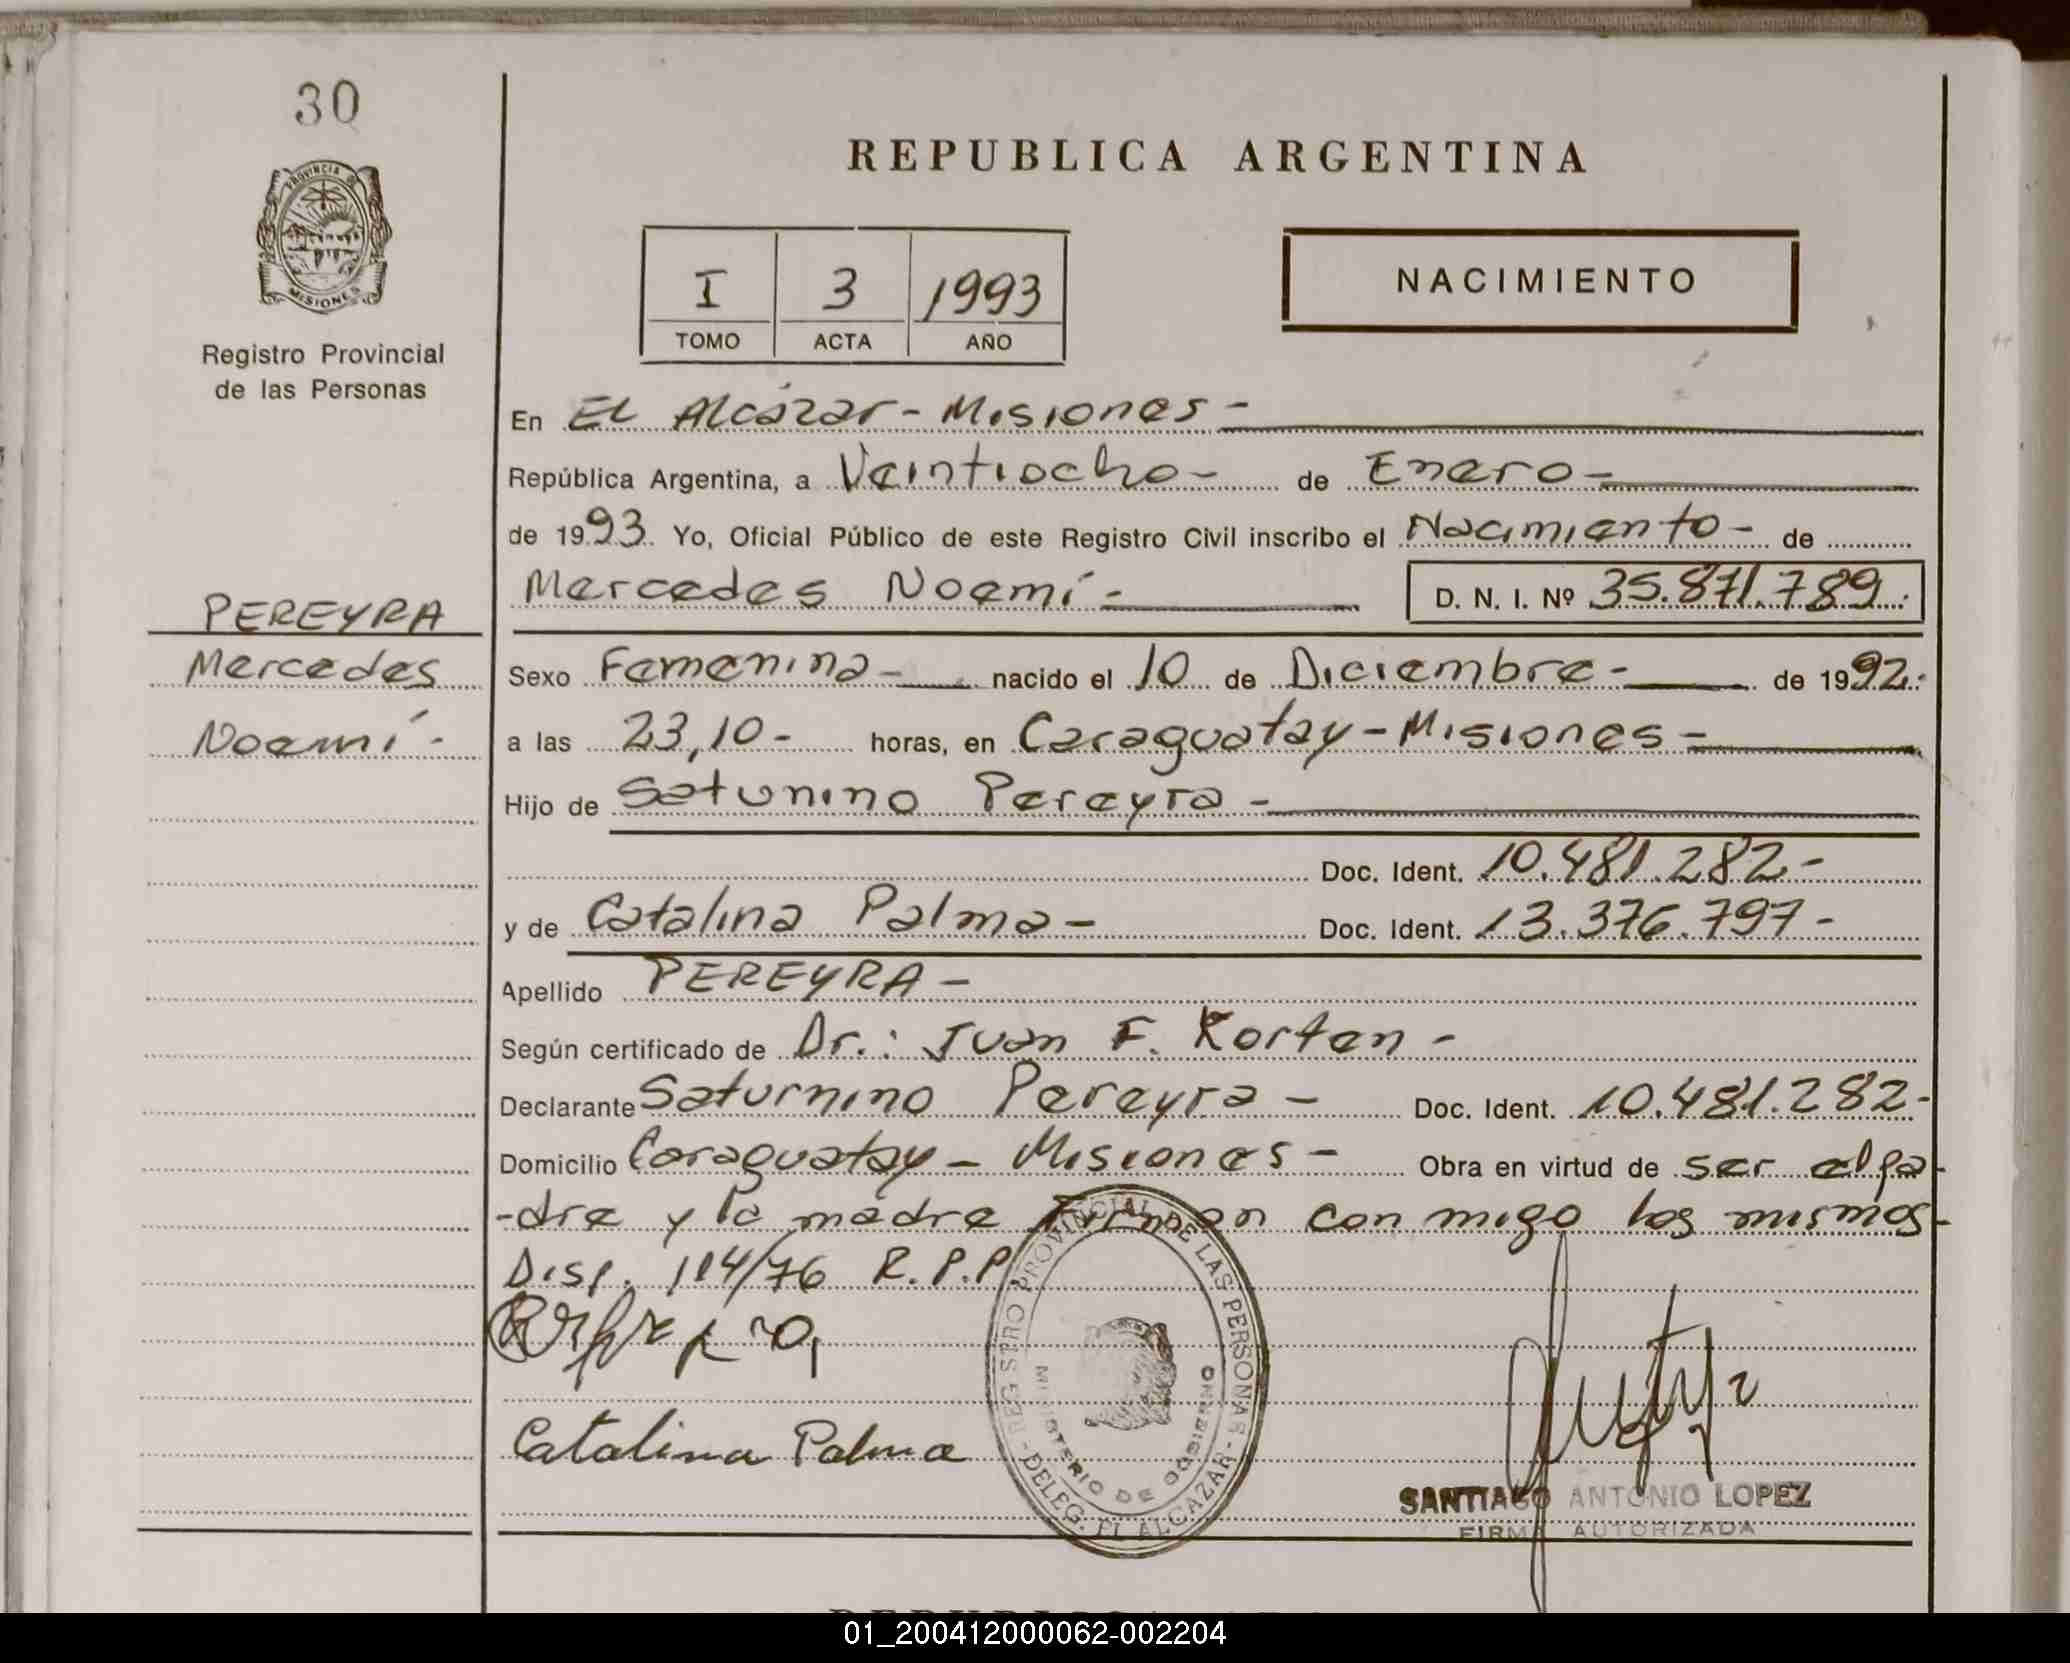 30
PROVINCIA DE
MISIONES
Registro Provincial
de las Personas
REPUBLICA ARGENTINA
I 3 1993
TOMO ACTA AÑO
NACIMIENTO
En El Alcázar - Misiones -
República Argentina, a Veintiocho - de Enero -
de 1993. Yo, Oficial Público de este Registro Civil inscribo el Nacimiento - de
Mercedes Noemí - D. N. I. Nº 35.871.789.
PEREYRA
Mercedes
Noemí -
Sexo Femenina - nacido el 10 de Diciembre - de 1992.
a las 23,10 - horas, en Caraguatay - Misiones -
Hijo de Satunino Pereyra -
Doc. Ident. 10.481.282 -
y de Catalina Palma - Doc. Ident. 13.376.797 -
Apellido PEREYRA -
Según certificado de Dr.: Juan F. Korten -
Declarante Saturnino Pereyra - Doc. Ident. 10.481.282 -
Domicilio Caraguatay - Misiones - Obra en virtud de ser el pa-
-dre y la madre Firman con migo los mismos -
Disp. 114/76 R.P.P
Catalina Palma
REGISTRO PROVINCIAL DE LAS PERSONAS
MINISTERIO DE GOBIERNO
- DELEG. EL ALCAZAR -
SANTIAGO ANTONIO LOPEZ
FIRMA AUTORIZADA
01_200412000062-002204